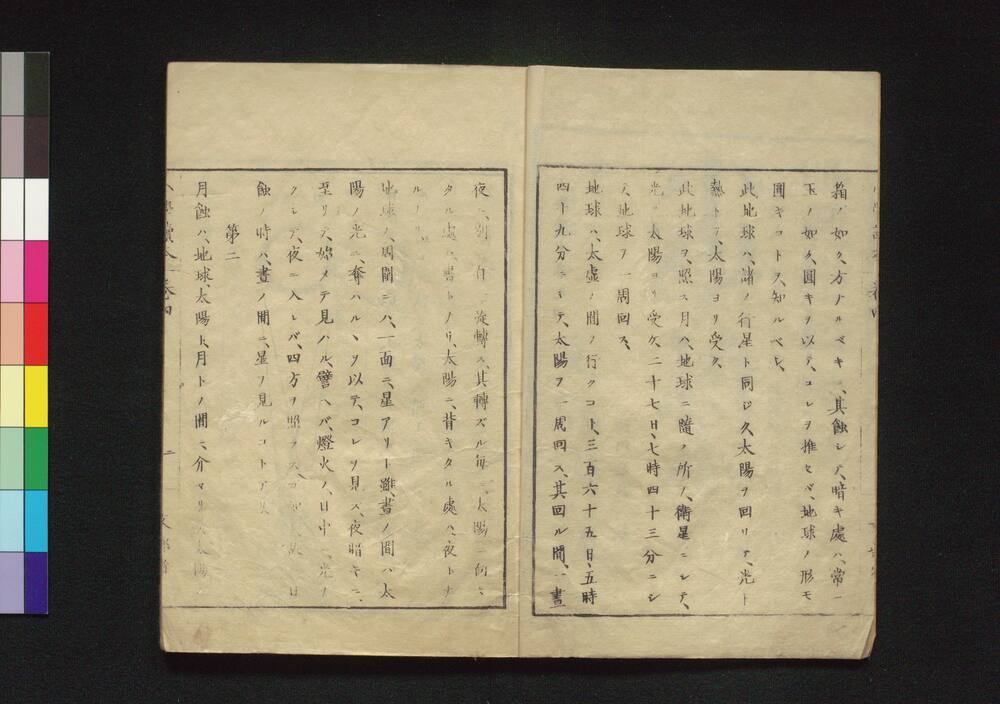 箱ノ如ク、方ナルベキニ、其蝕シテ、暗キ處ハ、常ニ
玉ノ如ク、圓キヲ以テ、コレヲ推セバ、地球ノ形モ
圓キコトヲ、知ルベシ、
此地球ハ、諸ノ行星ト同ジク太陽ヲ回リテ、光ト
熱トヲ、太陽ヨリ受ク、
此地球ヲ、照ス月ハ、地球ニ隨フ所ノ、衛星ニシテ、
光ヲ太陽ヨリ受ク、二十七日、七時四十三分ニシ
テ、地球ヲ一周回ス、
地球ハ、太虚ノ間ヲ行クコト、三百六十五日、五時
四十九分ニシテ、太陽ヲ一周回ス、其回ル間、一晝
夜ニ、別ニ自ラ旋轉ス、其轉ズル毎ニ、太陽ニ向ヒ
タル處ハ、晝トナリ、太陽ニ、背キタル處ハ、夜トナ
ルナリ、
地球ノ、周圍ニハ、一面ニ、星アリト雖、晝ノ間ハ太
陽ノ光ニ、奪ハルヽヲ以テ、コレヲ見ズ、夜暗キニ、
至リテ、始メテ見ハル、譬ヘバ、燈火ノ、日中ニ光ノ
クシテ、夜ニ入レバ、四方ヲ照ラス
蝕ノ時ハ、晝ノ間ニ、星ヲ見ルコトアリ
第二
月蝕ハ、地球、太陽ト、月トノ間ニ、介マリ、太陽